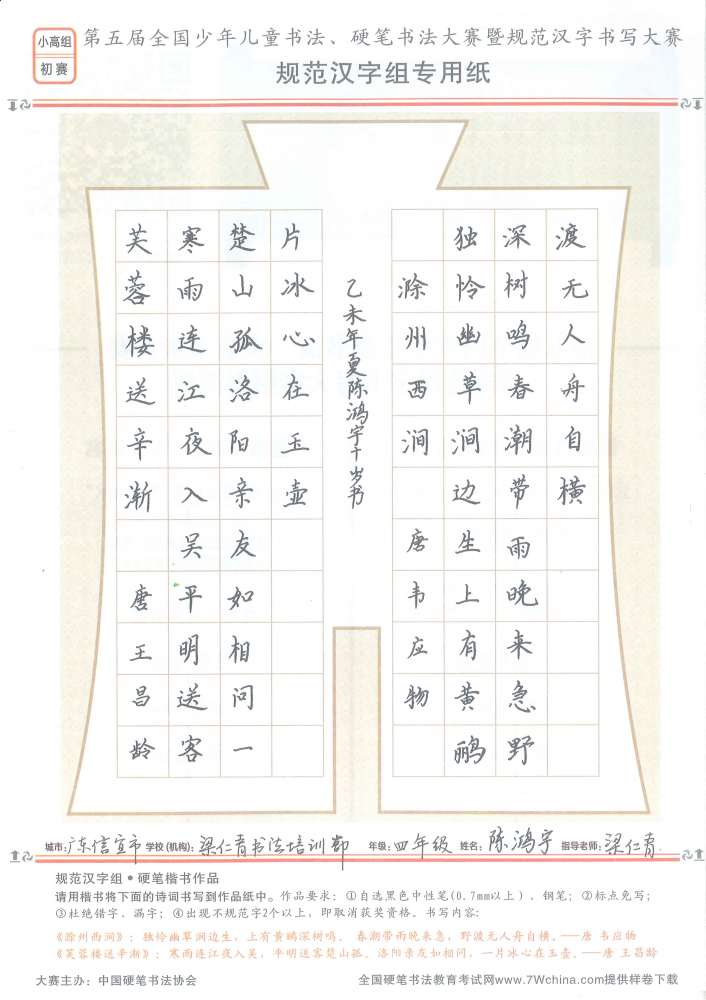 小高组
初赛
第五届全国少年儿童书法、硬笔书法大赛暨规范汉字书写大赛
规范汉字组专用纸
芙蓉楼送辛渐 唐王昌龄
寒雨连江夜入吴平明送客
楚山孤洛阳亲友如相问一
片冰心在玉壶
乙未年夏陈鸿宇十岁书
滁州西涧 唐韦应物
独怜幽草涧边生上有黄鹂
深树鸣春潮带雨晚来急野
渡无人舟自横
城市:广东信宜市 学校(机构):梁仁青书法培训部 年级:四年级 姓名:陈鸿宇 指导老师:梁仁青.
规范汉字组●硬笔楷书作品
请用楷书将下面的诗词书写到作品纸中。作品要求：①自选黑色中性笔(0.7mm以上)、钢笔；②标点免写；
③杜绝错字、漏字；④出现不规范字2个以上，即取消获奖资格。书写内容：
《滁州西涧》：独怜幽草涧边生，上有黄鹂深树鸣。 春潮带雨晚来急，野渡无人舟自横。——唐 韦应物
《芙蓉楼送辛渐》：寒雨连江夜入吴，平明送客楚山孤。洛阳亲友如相问，一片冰心在玉壶。——唐 王昌龄
大赛主办：中国硬笔书法协会 全国硬笔书法教育考试网www.7Wchina.com提供样卷下载